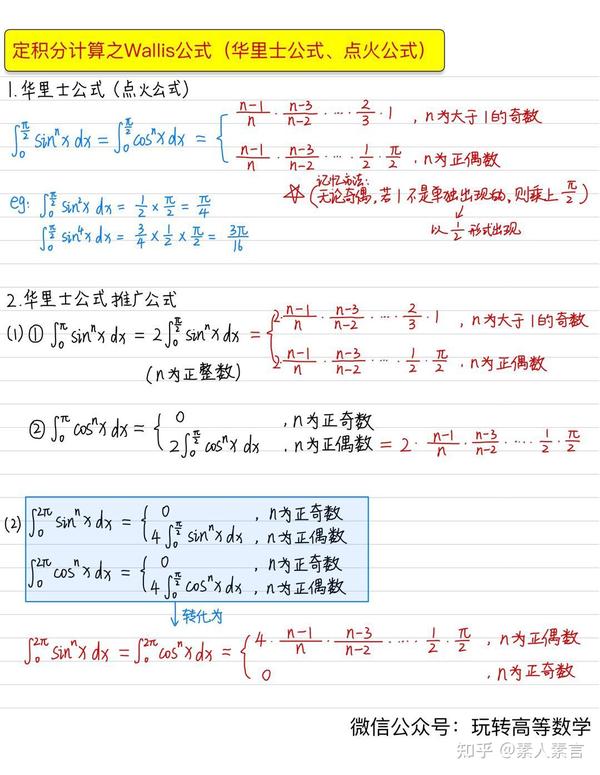 定积分计算之Wallis公式（华里士公式、点火公式）
1.华里士公式（点火公式）
∫₀^{π/2} sinⁿx dx = ∫₀^{π/2} cosⁿx dx = { (n-1)/n · (n-3)/(n-2) · ⋯ · 2/3 · 1 ，n为大于1的奇数
(n-1)/n · (n-3)/(n-2) · ⋯ · 1/2 · π/2 ，n为正偶数
eg: ∫₀^{π/2} sin²x dx = 1/2 × π/2 = π/4
☆ 记忆方法:
(无论奇偶，若1不是单独出现的，则乘上 π/2)
↓
以 1/2 形式出现
∫₀^{π/2} sin⁴x dx = 3/4 × 1/2 × π/2 = 3π/16
2.华里士公式推广公式
(1) ① ∫₀^π sinⁿx dx = 2∫₀^{π/2} sinⁿx dx = { 2·(n-1)/n · (n-3)/(n-2) · ⋯ · 2/3 · 1 ，n为大于1的奇数
2·(n-1)/n · (n-3)/(n-2) · ⋯ · 1/2 · π/2 ，n为正偶数
(n为正整数)
② ∫₀^π cosⁿx dx = { 0 ，n为正奇数
2∫₀^{π/2} cosⁿx dx ，n为正偶数 = 2 · (n-1)/n · (n-3)/(n-2) · ⋯ · 1/2 · π/2
(2) ∫₀^{2π} sinⁿx dx = { 0 ，n为正奇数
4∫₀^{π/2} sinⁿx dx ，n为正偶数
∫₀^{2π} cosⁿx dx = { 0 ，n为正奇数
4∫₀^{π/2} cosⁿx dx ，n为正偶数
↓ 转化为
∫₀^{2π} sinⁿx dx = ∫₀^{2π} cosⁿx dx = { 4 · (n-1)/n · (n-3)/(n-2) · ⋯ · 1/2 · π/2 ，n为正偶数
0 ，n为正奇数
微信公众号：玩转高等数学
知乎 @素人素言